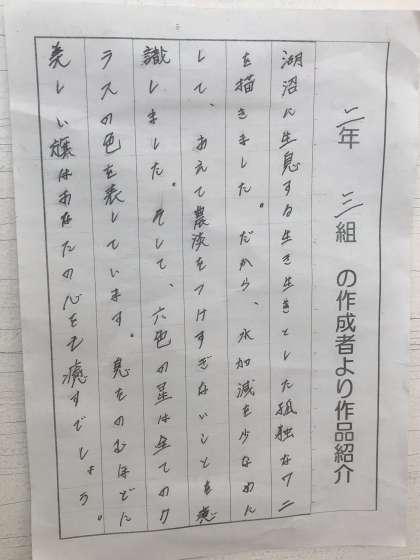 二年 三組 の作成者より作品紹介
湖沼に生息する生き生きとした孤独なワニ
を描きました。だから、水加減を少なめに
して、あえて濃淡をつけすぎないことを意
識しました。そして、六色の星は全てのク
ラスの色を表しています。息をのむほどに
美しい
はあなたの心をも癒すでしょう。